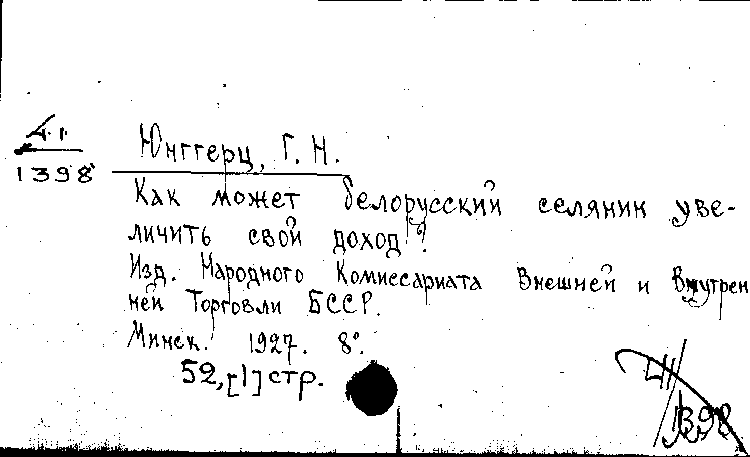 41
1398
Юнггерц, Г. Н.
Как может белорусский селянин уве-
личить свой доход?
Изд. Народного Комиссариата Внешней и Внутрен
ней Торговли БССР.
Минск. 1927. 8°.
52,[1] стр.
41/
1398